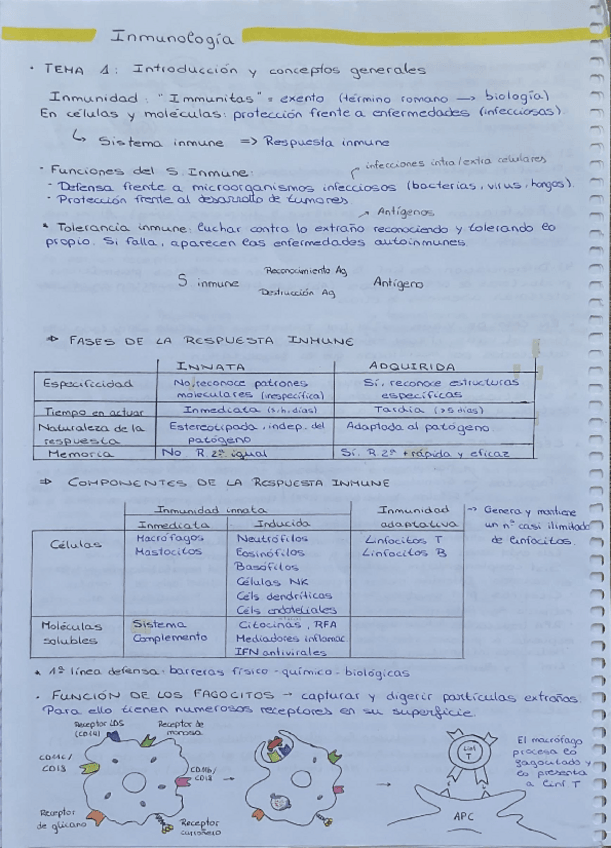 Inmunología
· TEMA 1: Introducción y conceptos generales
Inmunidad: "Immunitas" = exento (término romano → biología)
En células y moléculas: protección frente a enfermedades (infecciosas).
↳ Sistema inmune => Respuesta inmune
· Funciones del S. Inmune:
infecciones intra/extra celulares
- Defensa frente a microorganismos infecciosos (bacterias, virus, hongos).
- Protección frente al desarrollo de tumores.
→ Antígenos
* Tolerancia inmune: luchar contra lo extraño reconociendo y tolerando lo
propio. Si falla, aparecen las enfermedades autoinmunes.
Reconocimiento Ag
S inmune Antígeno
Destrucción Ag
⇒ FASES DE LA RESPUESTA INMUNE
INNATA ADQUIRIDA
Especificidad No, reconoce patrones Sí, reconoce estructuras
moleculares (inespecífica) específicas
Tiempo en actuar Inmediata (s.h.días) Tardía (>5 días)
Naturaleza de la Estereotipada, indep. del Adaptada al patógeno
respuesta patógeno
Memoria No. R 2ª igual Sí. R 2ª + rápida y eficaz
⇒ COMPONENTES DE LA RESPUESTA INMUNE
Inmunidad innata Inmunidad → Genera y mantiene
Inmediata Inducida adaptativa un nº casi ilimitado
Células Macrófagos Neutrófilos Linfocitos T de linfocitos.
Mastocitos Eosinófilos Linfocitos B
Basófilos
Células NK
Céls dendríticas
Céls endoteliales
Moléculas Sistema Citocinas, RFA
solubles Complemento Mediadores inflamac
IFN antivirales
* 1ª línea defensa · barreras físico - químico - biológicas
· FUNCIÓN DE LOS FAGOCITOS → capturar y digerir partículas extrañas.
Para ello tienen numerosos receptores en su superficie.
Receptor LDS Receptor de
(CD14) manosa
CD11c/
CD18
CD11b/
CD18
Receptor
de glucano
Receptor
carroñero
Linf
T
APC
El macrófago
procesa lo
fagocitado y
lo presenta
a linf T